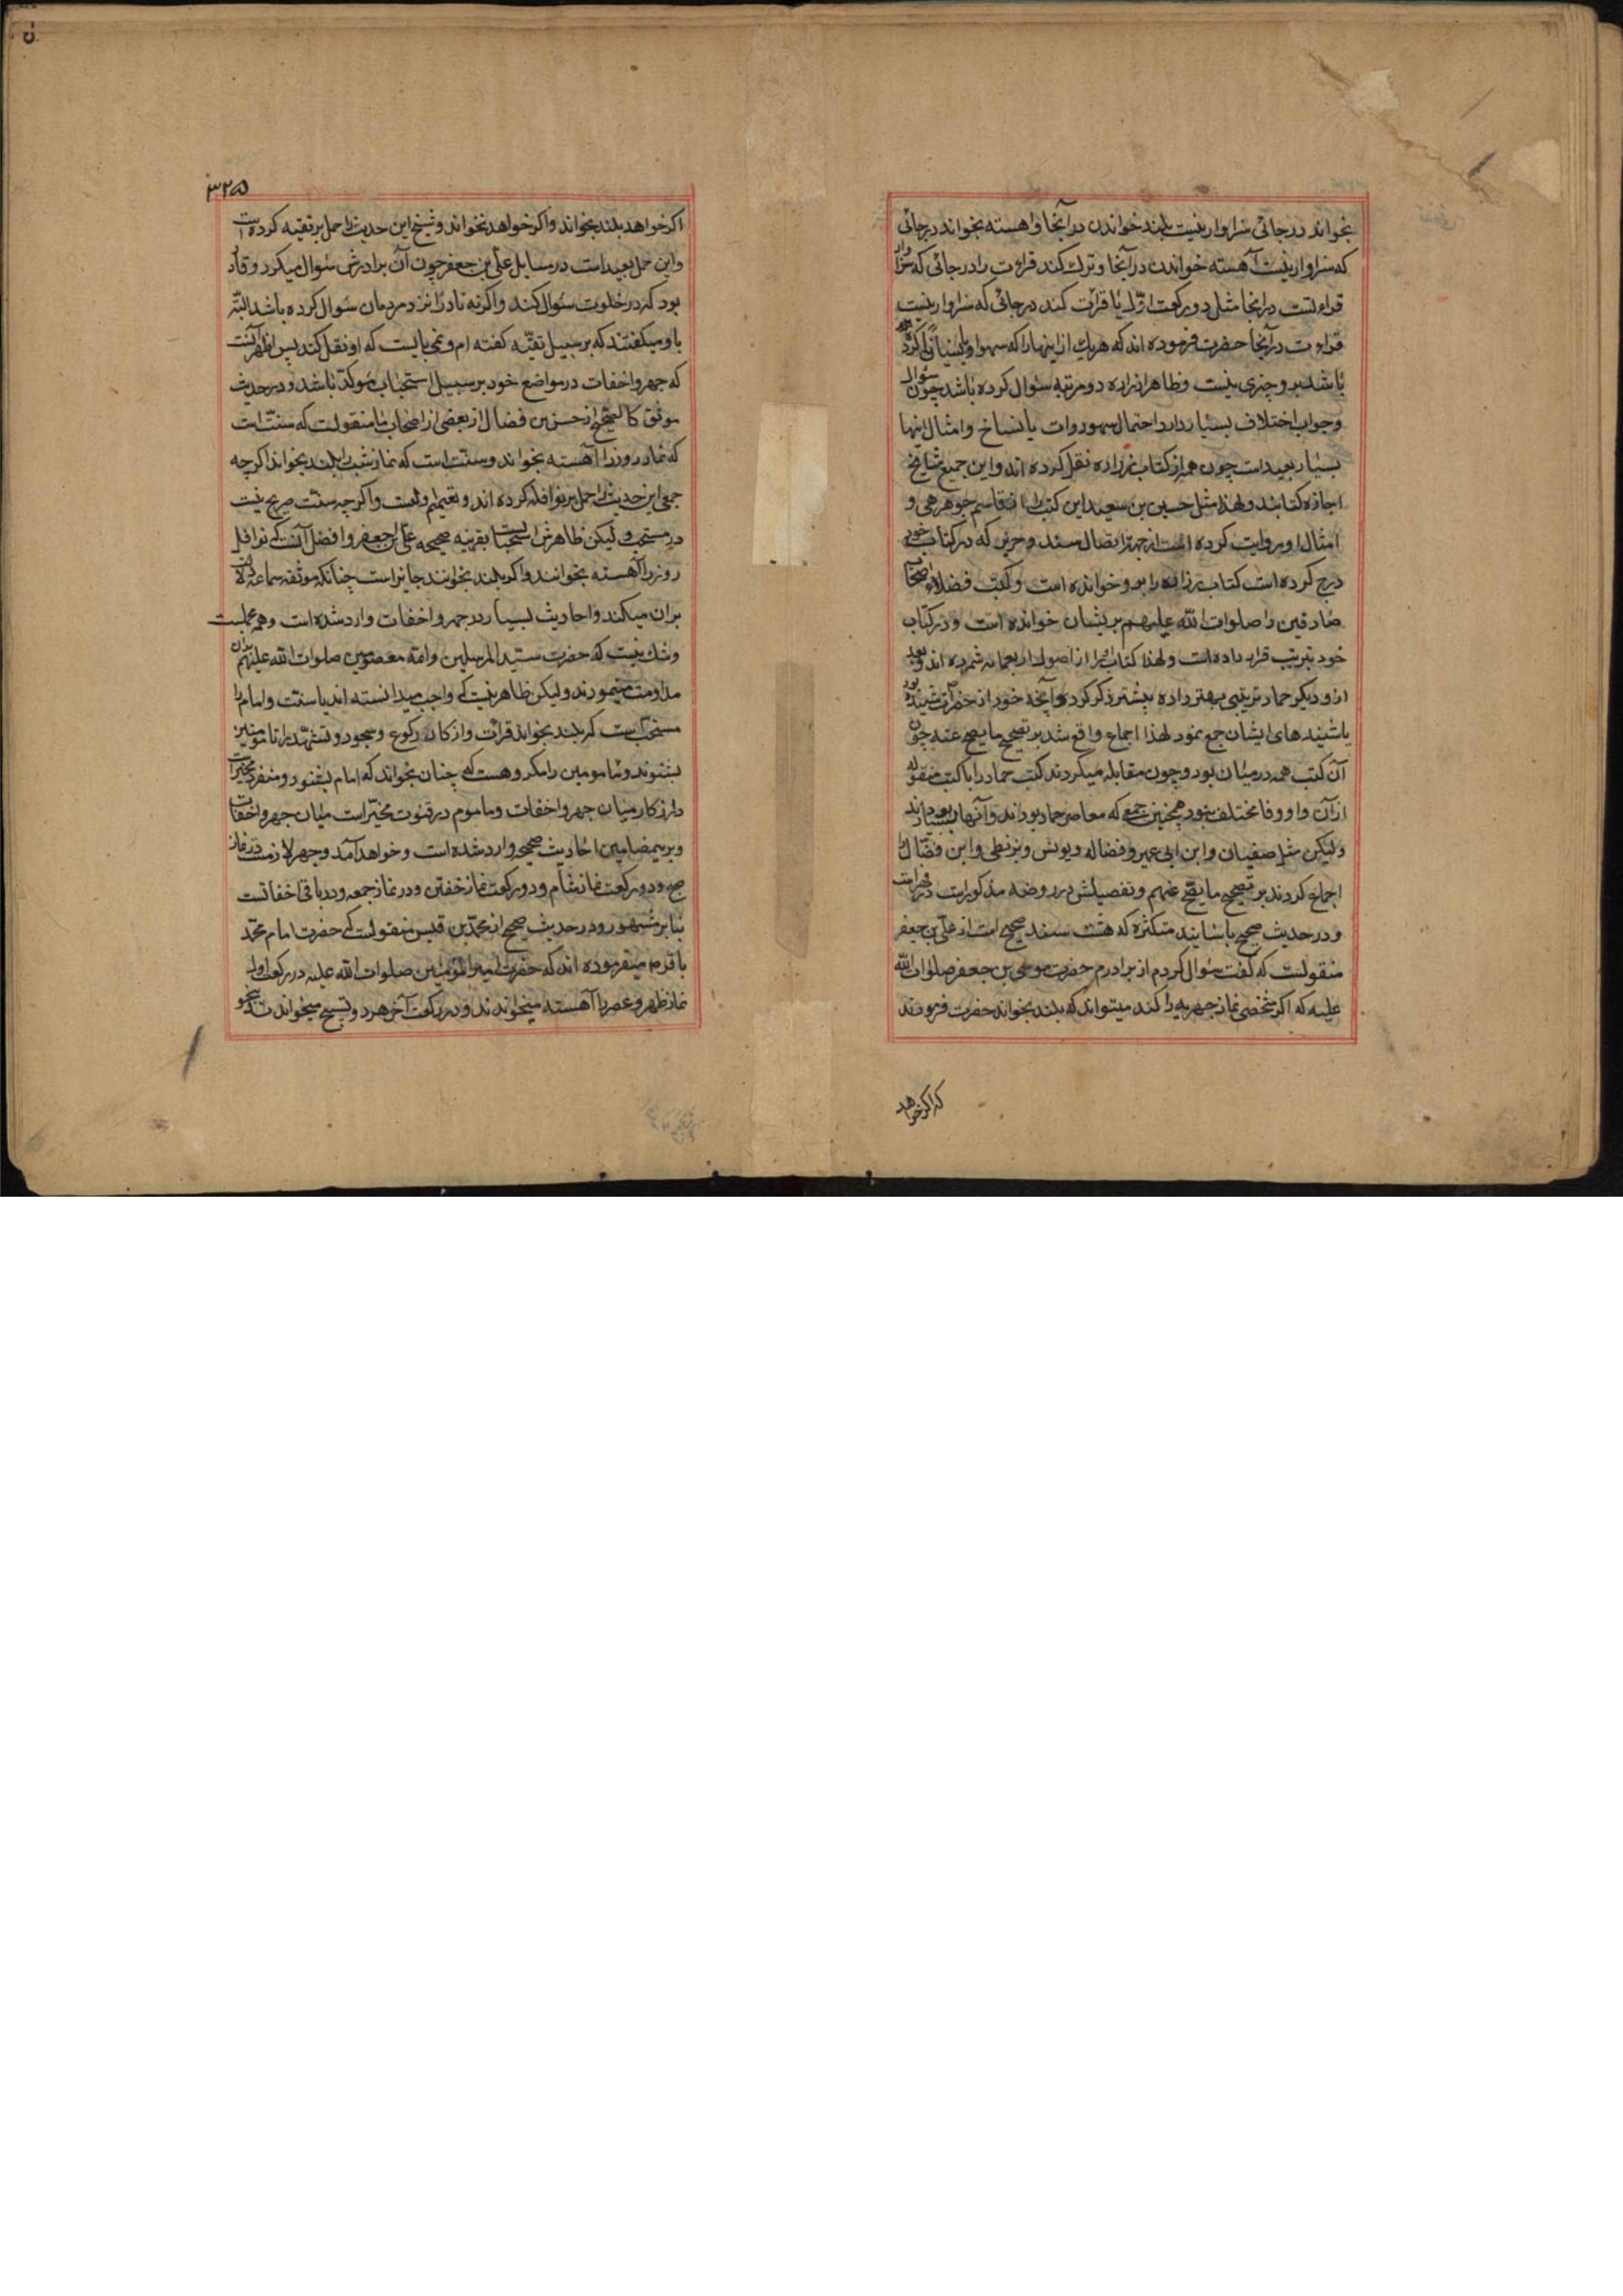 بخواند در جائی سزاوار نیست بلند خواندن در آنجا و اهسته بخواند در جائی
که سزاوار نیست آهسته خواندن در آنجا و ترك کند قراءت را در جائی که سزاوار
قراءتست در انجا مثل دو رکعت اوّل یا قرائت کند در جائی که سزاوار نیست
قراءت در آنجا حضرت فرموده اند که هریك از اینها را که سهوا و یا نسیانًا کرده
باشد برو چیزی نیست و ظاهرا زراره دو مرتبه سئوال کرده باشد چون سئوال
و جواب اختلاف بسیار دارد احتمال سهو روات یا نساخ و امثال اینها
بسیار بعید است چون همه از کتاب زراره نقل کرده اند و این جمیع مشایخ
اجازه کتابند و لهذا مثل حسین بن سعید این کتب را از قاسم جوهری و
امثال او روایت کرده است از جهة اتصال سند و حریز که در کتاب خود
درج کرده است کتاب زراره را برو خوانده است و کتب فضلاء اصحاب
صادقین را صلوات اللّه علیهم بریشان خوانده است و در کتاب
خود ترتیب قرار داده است و لهذا کتاب او را از اصول اربعمایه شمرده اند و بعد
ازو دیگر حماد ترتیبی بهتر داده بیشتر ذکر کرده و آنچه خود از حضرت شنیده بود
باشنیدهای ایشان جمع نمود لهذا اجماع واقع شد بر تصحیح ما یصح عنه چون
آن کتب همه در میان بود و چون مقابله میکردند کتب حماد را با کتب منقوله
ازان واو و فا مختلف نبود همچنین جمعی که معاصر حماد بودند و آنها بسیار بودند
ولیکن مثل صفیان و ابن ابی عمیر و فضاله و یونس و بزنطی و ابن فضّال را
اجماع کردند بر تصحیح ما یصّح عنهم و تفصیلش در روضه مذکور است
و در حدیث صحیح باسانید متکثره که هشت سند صحیح است از علّی بن جعفر
منقولست که گفت سئوال کردم از برادرم حضرت موسی بن جعفر صلوات اللّه
علیه که اکر شخصی نماز جهریه را کند میتواند که بلند بخواند حضرت فرمودند
که اکر خواهد
۳۲۵
اکر خواهد بلند بخواند و اکر خواهد نخواند و شیخ این حدیث را حمل بر تقیه کرده است
و این حمل بعید است در مسایل علی بن جعفر چون آن برادرش سئوال میکرد و قادر
بود که در خلوت سئوال کند و اکر نه نادرًا نزد مردمان سئوال کرده باشد البتّه
باو میکفتند که بر سبیل تقیّه کفته ام و نمی بایست که او نقل کند پس اظهر آنست
که جهر و اخفات در مواضع خود بر سبیل استحباب مؤکد باشد و در حدیث
موثق کالصحیح از حسن بن فضال از بعضی از اصحاب ما منقولست که سنّت است
که نماز روز را آهسته بخواند و سنّت است که نماز شب را بلند بخواند اکرچه
جمعی این حدیث را حمل بر نوافله کرده اند و تعمیم اولیست و اکرچه سنّت صریح نیست
در مستحب و لیکن ظاهرش استحبابست بقرینه صحیحه علی بن جعفر و افضل آنست که نوافل
روز را آهسته بخوانند و اکر بلند بخوانند جایز است چنانکه موثقه سماعه دلالت
بران میکند و احادیث بسیار در جهر و اخفات وارد شده است و همه محملست
و شك نیست که حضرت سیّد المرسلین و ائمه معصومین صلوات اللّه علیهم بران
مداومت مینمودند و لیکن ظاهر نیست که واجب میدانسته اند یا سنّت و امام را
مستحبّ است که بلند بخواند قرائت و اذکار رکوع و سجود و تشهّد را تا مومنین
بشنوند و مامومین را مکروهست که چنان بخواند که امام بشنود و منفرد مخیّر است
در اذکار میان جهر و اخفات و ماموم در قنوت مخیّر است میان جهر و اخفات
و برینمضامین احادیث صحیحه وارد شده است و خواهد آمد و جهر لازمست در نماز
صبح و دو رکعت نماز شام و دو رکعت نماز خفتن و در نماز جمعه و در باقی اخفاتست
بنا بر مشهور و در حدیث صحیح از محمّد بن قیس منقولست که حضرت امام محمّد
باقر میفرموده اند که حضرت امیر المؤمنین صلوات اللّه علیه در رکعت اول
نماز ظهر و عصر را آهسته میخواندند و در رکعت آخر هر دو تسبیح میخواندند بنحو